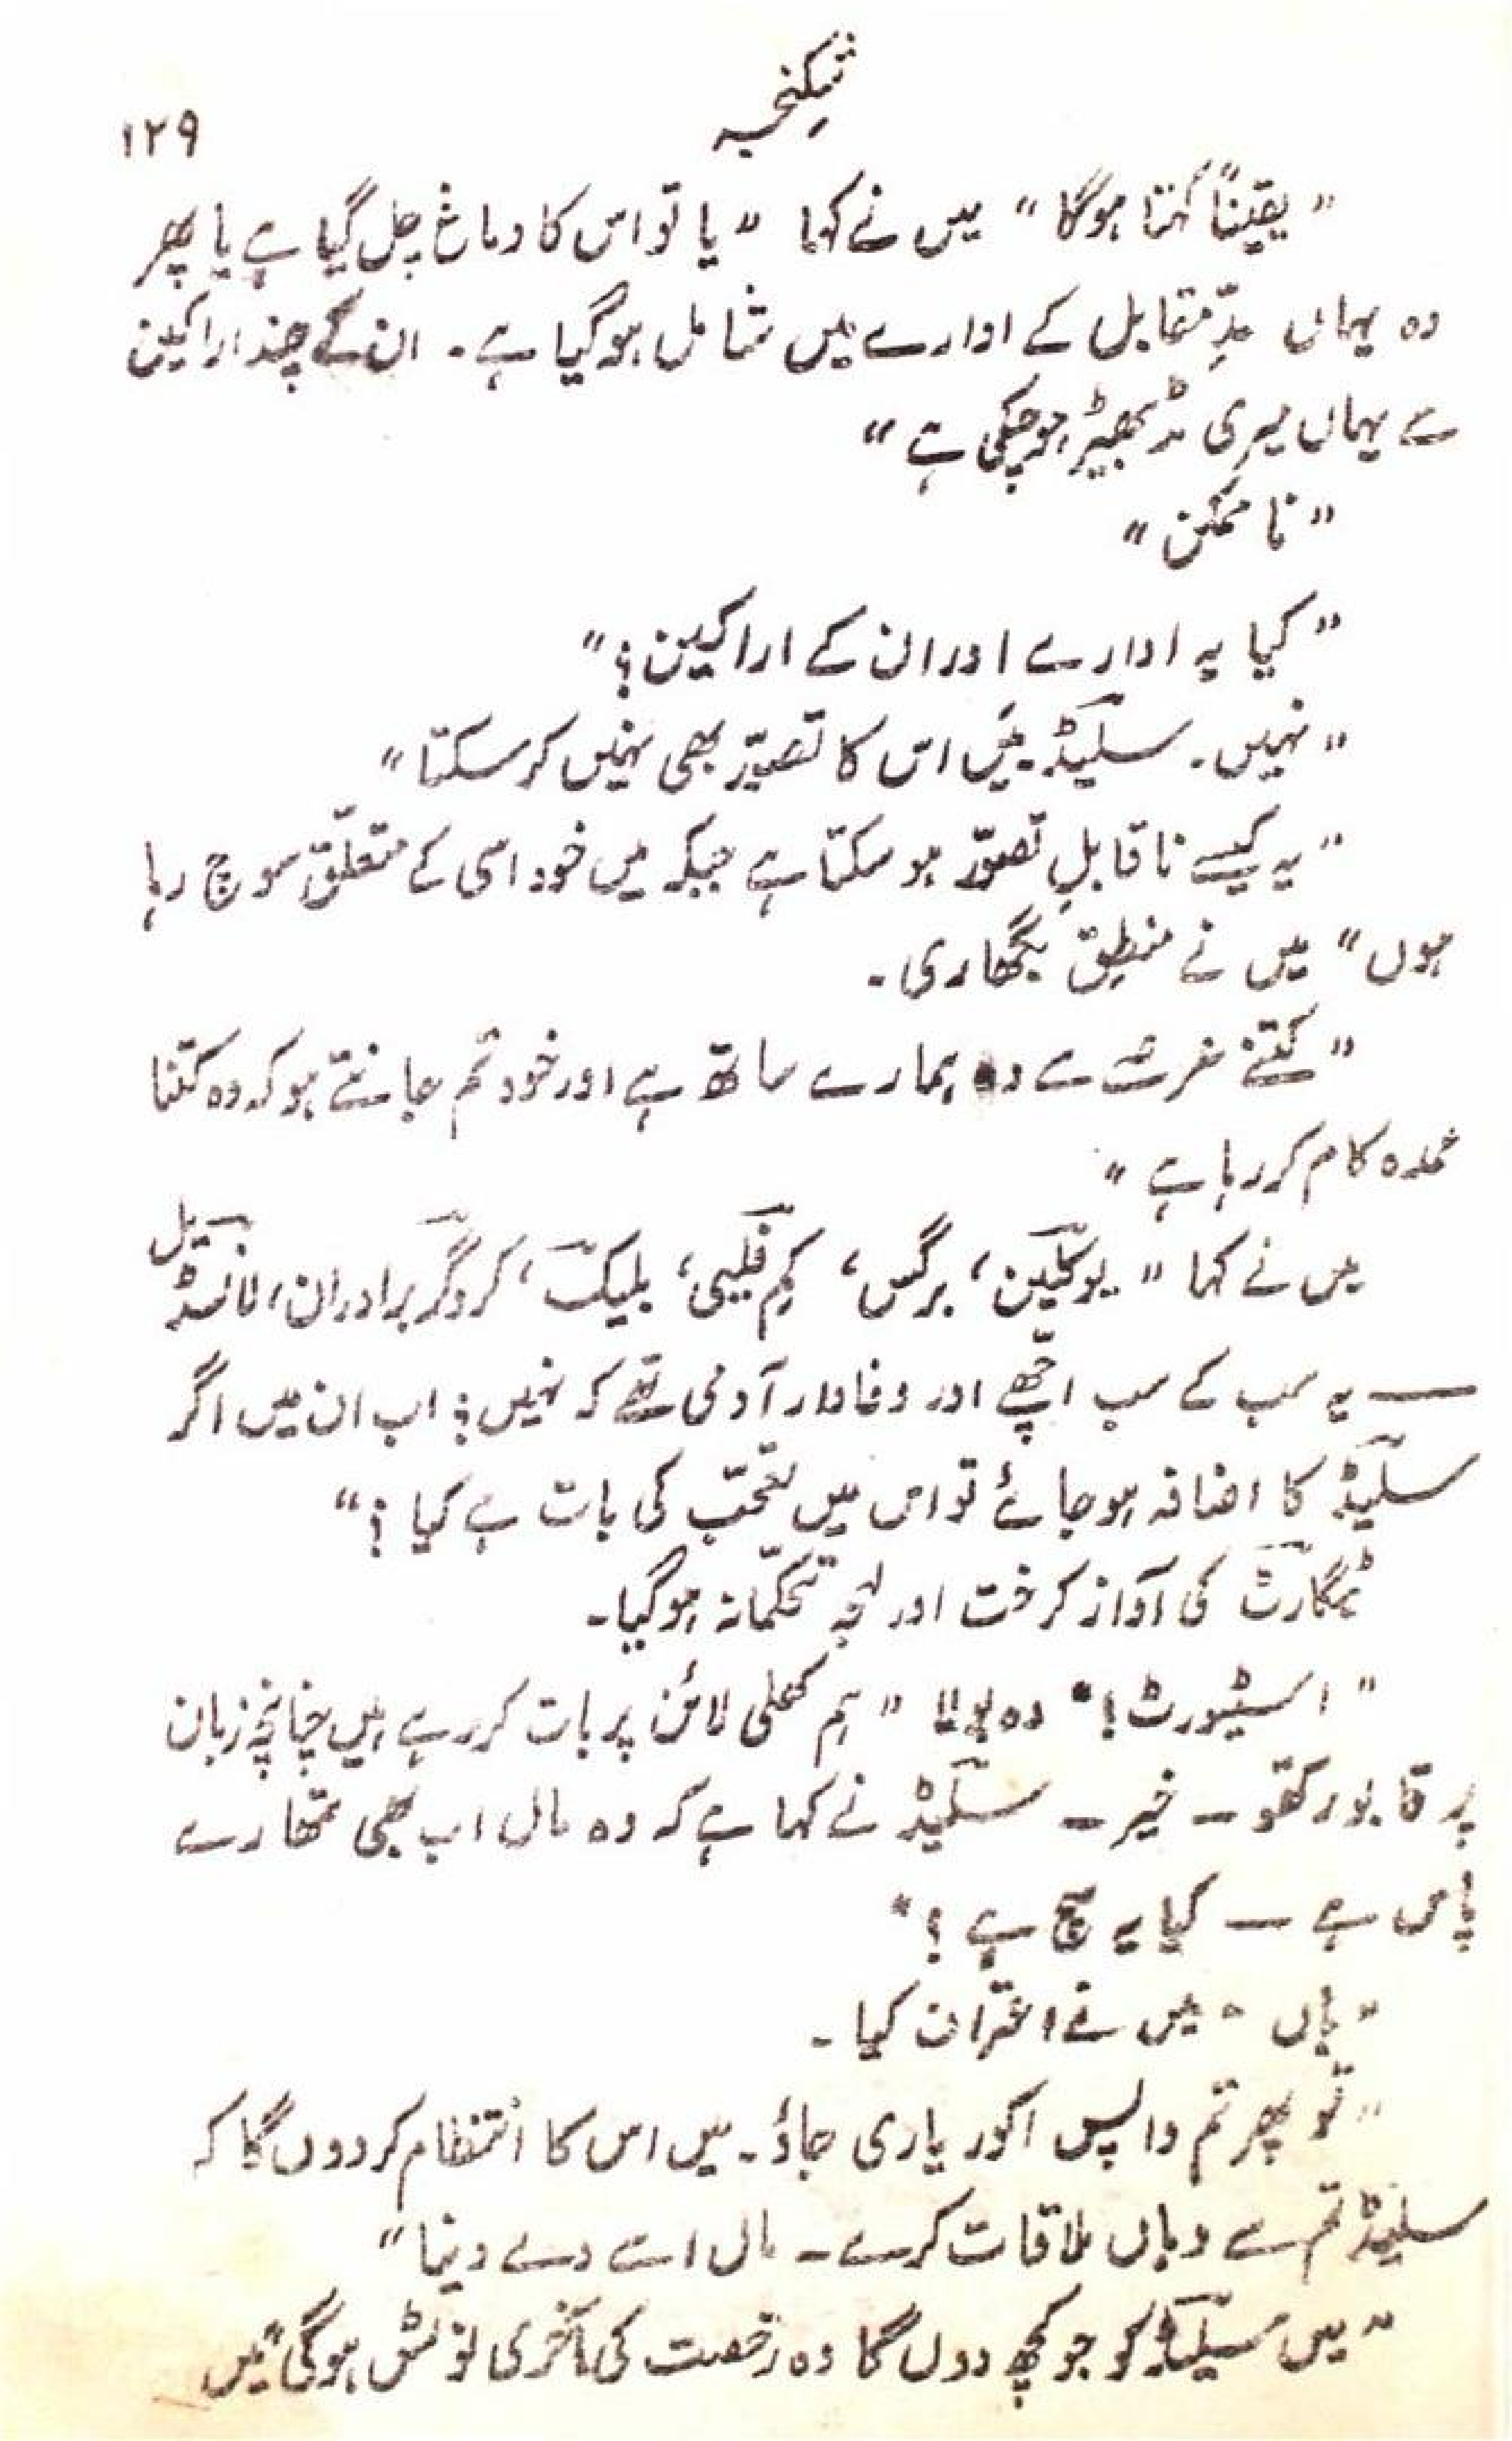 شکنجہ
۱۲۹
" یقیناً کہتا ہوگا " میں نے کہا " یا تو اس کا دماغ چل گیا ہے یا پھر
وہ یہاں مدِّمقابل کے ادارے میں شامل ہوگیا ہے ۔ ان کے چند اراکین
سے یہاں میری مڈبھیڑ ہوچکی ہے "
" نا ممکن "
" کیا یہ ادارے اور ان کے اراکین ؟ "
" نہیں ۔ سلیڈ ۔ میں اس کا تصوّر بھی نہیں کر سکتا "
" یہ کیسے ناقابلِ تصوّر ہو سکتا ہے جبکہ میں خود اسی کے متعلّق سوچ رہا
ہوں " میں نے منطق بگھاری ۔
" کتنے عرصے سے وہ ہمارے ساتھ ہے اور خود تم جانتے ہو کہ وہ کتنا
عمدہ کام کر رہا ہے "
میں نے کہا " یوکلین ، برگس ، کم فلیبی ، بلیک ، کروگر برادران ، لانسڈیل
— یہ سب کے سب اچّھے اور وفادار آدمی تھے کہ نہیں ؟ اب ان میں اگر
سلیڈ کا اضافہ ہوجائے تو اس میں تعجّب کی بات ہے کیا ؟ "
ٹیگارٹ کی آواز کرخت اور لہجہ تحکّمانہ ہوگیا ۔
" اسٹیورٹ ! " وہ بولا " ہم کھلی لائن پر بات کر رہے ہیں چنانچہ زبان
پر قابو رکھو — خیر — سلیڈ نے کہا ہے کہ وہ مال اب بھی تمھارے
پاس ہے — کیا یہ سچ ہے ؟ "
" ہاں " میں نے اعتراف کیا ۔
" تو پھر تم واپس اکوریاری جاؤ ۔ میں اس کا انتظام کردوں گا کہ
سلیڈ تم سے وہاں ملاقات کرے — مال اسے دے دینا "
" میں سلیڈ کو جو کچھ دوں گا وہ رخصت کی آخری نوٹس ہوگی " میں